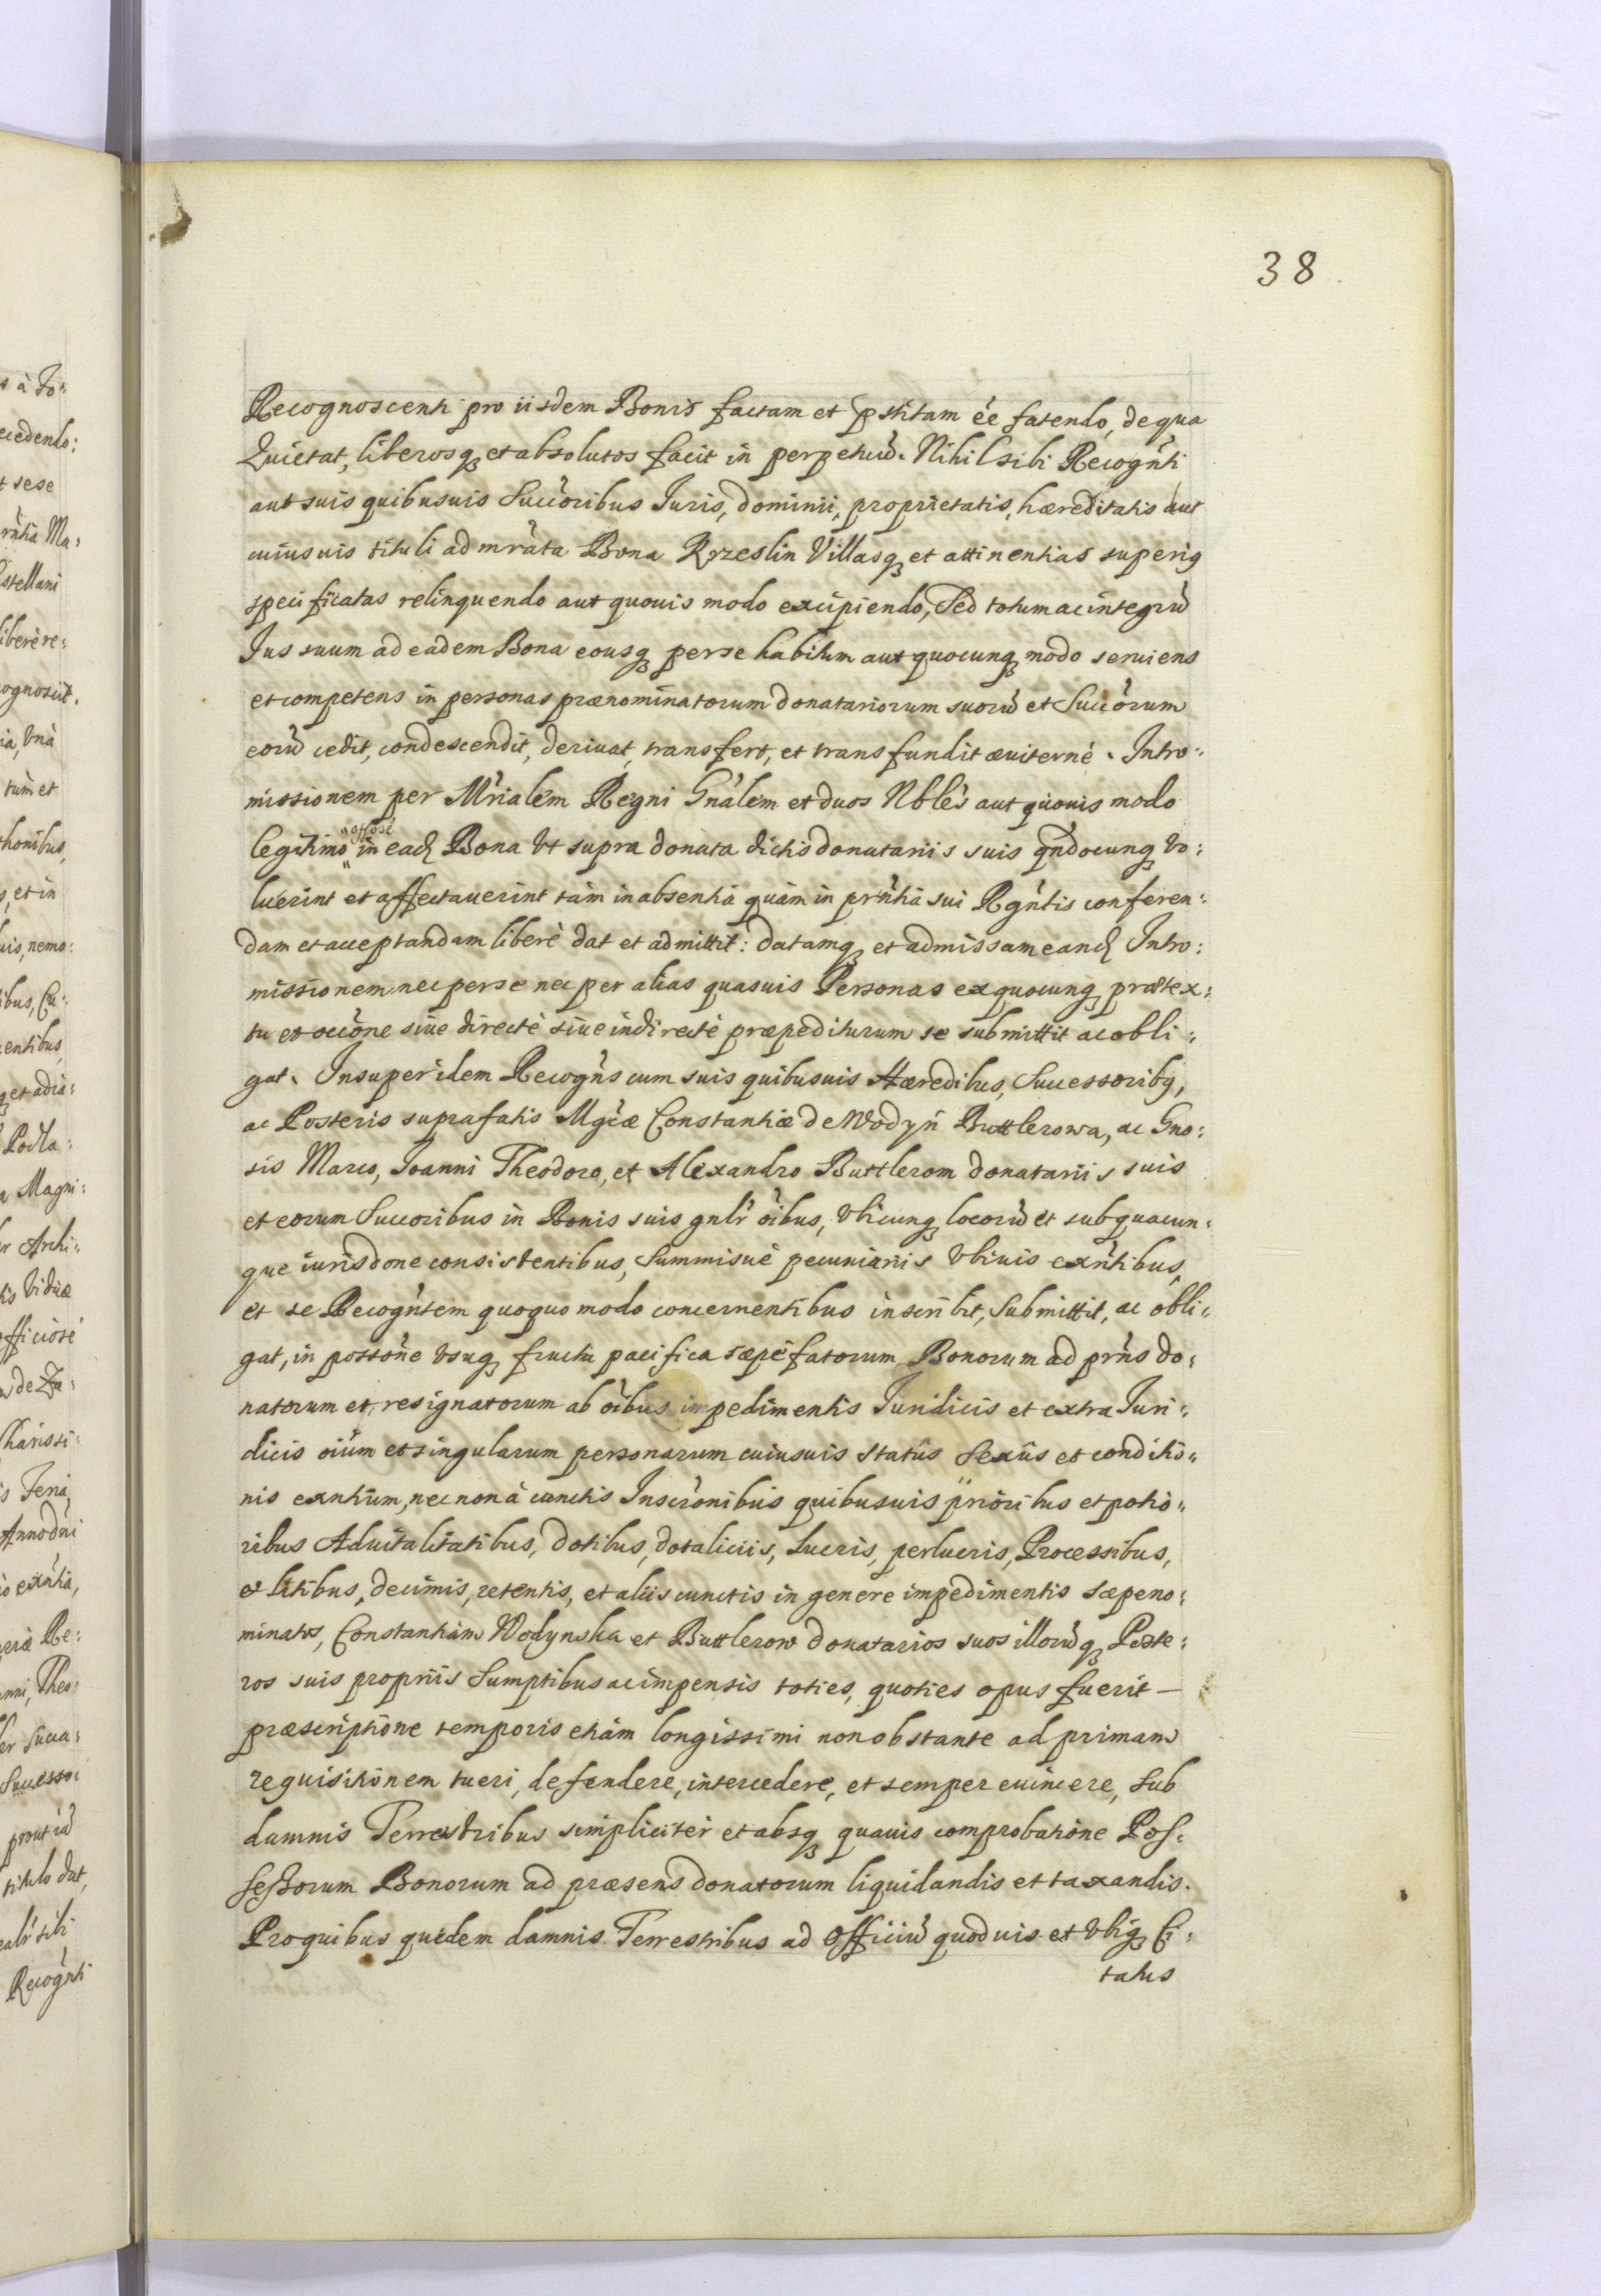 38
Recognoscenti pro iisdem Bonis factam et pstitam ée fatendo, de qua
Quietat, liberosq₃ et absolutos facit in perpetuũ. Nihil sibi Recogñti
aut suis quibusuis Succ̃oribus Juris, dominii, proprietatis, hæreditatis aut
cuiusuis tituli ad mr̃ata Bona Krzeslin Villasq₃ et attinentias superiq
specificatas relinquendo aut quouis modo excipiendo, Sed totum ac integrũ
Jus suum ad eadem Bona eousq₃ per se habitum aut quocunq₃ modo seruiens
et competens in personas prænominatorum donatariorum suorũ et Succ̃orum
eorũ cedit, condescendit, deriuat, transfert, et transfundit æuiternè. Intro:
missionem per Mr̃ialem Regni Gñalem et duos Nbles aut quouis modo
legitimo offose in eadȝ Bona Vt supra donata dictis donatariis suis qñdocunq₃ vo:
luerint et affectauerint tàm in absentia quàm in prñtia sui Rgñtis conferen:
dam et acceptandam liberè dat et admittit: datamq₃ et admissam eandȝ Intro:
missionem nec per se nec per alias quasuis Personas ex quocunq₃ prætex:
tu et occõne siue directè siue indirectè præpediturum se submittit ac obli:
gat. Insuper idem Recogñs cum suis quibusuis Hæredibus, Successoribq,
ac Posteris suprafatis Mgc̃æ Constantiæ de Wodyń Buttlerowa, ac Gno:
sis Marco, Joanni Theodoro, et Alexandro Buttlerom donatariis suis
et eorum Succoribus in Bonis suis gnlr̃ õibus, Vbicunq₃ locorũ et sub quacun:
que iurisdone consistentibus, Summisuè pecuniariis Vbiuis exñtibus,
et se Recogñtem quoquo modo concernentibus inscribit, Submittit, ac obli:
gat, in possõne Vsuq₃ fructu pacifica sæpèfatorum Bonorum ad prñs do:
natorum et resignatorum ab õibus impedimentis Juridicis et extra Juri:
dicis oiũm et singularum personarum cuiusuis statûs Sexûs et conditio:
nis exntium, nec non à cunctis Inscrõnibus quibusuis prioribus et potio:
ribus Aduitalitatibus, dotibus, dotaliciis, Lucris, perlucris, Processibus,
et litibus, decimis, retentis, et aliis cunctis in genere impedimentis sæpeno:
minatos, Constantiam Wodynska et Buttlerow donatarios suos illorũq₃ Poste:
ros suis propriis Sumptibus ac impensis toties, quoties opus fuerit –
præscriptione temporis etiàm longissimi non obstante ad primam
requisitionem tueri, defendere, intercedere, et semper euincere, Sub
damnis Terrestribus simplicitèr et absq₃ quauis comprobatione Pos:
sessorum Bonorum ad præsens donatorum liquidandis et taxandis.
Pro quibus quidem damnis Terrestribus ad Officiũ quoduis et Vbiq₃ Ci:
tatus